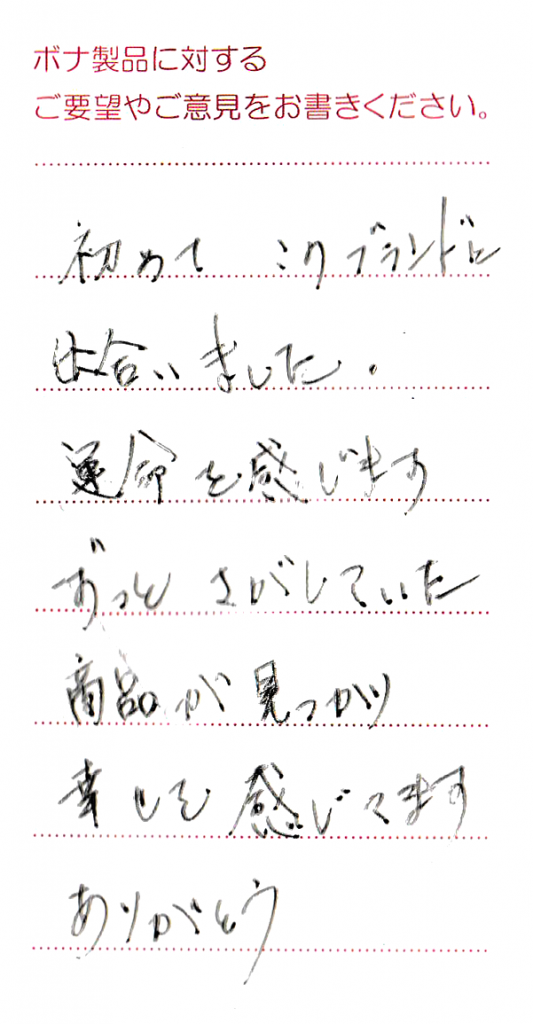 ボナ製品に対する
ご要望やご意見をお書きください。
初めて このブランドに
出合いました.
運命を感じます
ずっと さがしていた
商品が見つかり
幸せを感じてます
ありがとう